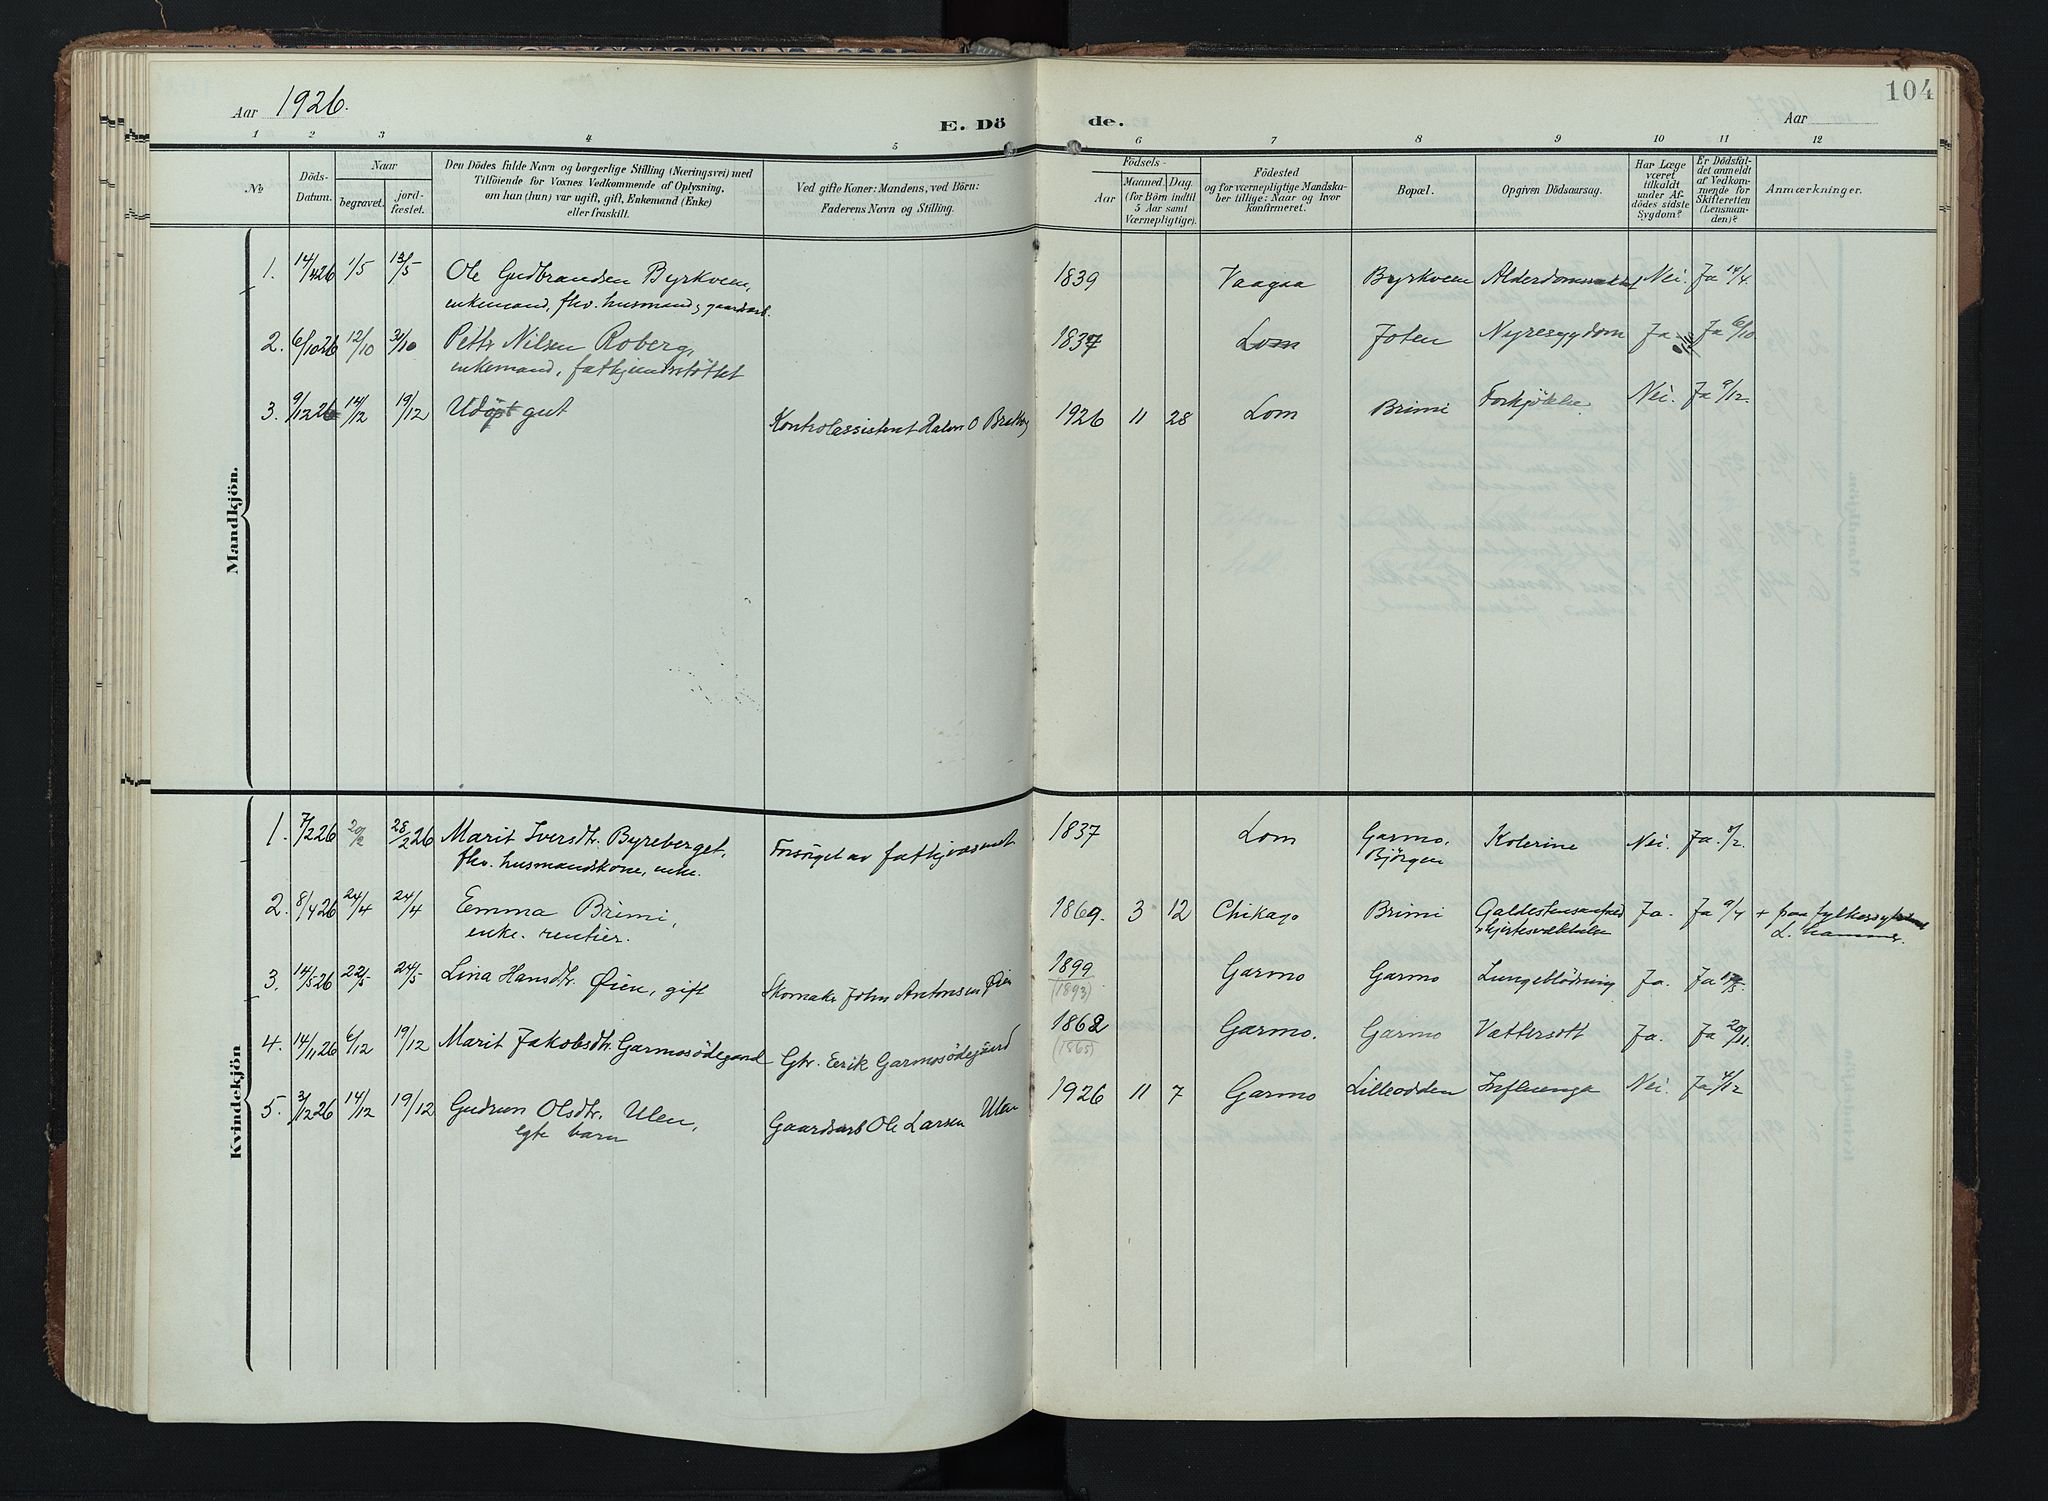 104
Aar 1926.
E. Dö de.
Aar
1 2 3 4 5 6 7 8 9 10 11 12
No
Döds-
Datum.
Naar
begravet.
jord-
fæstet.
Den Dödes fulde Navn og borgerlige Stilling (Næringsvei) med
Tilföiende for Voxnes Vedkommende af Oplysning,
om han (hun) var ugift, gift, Enkemand (Enke)
eller fraskilt.
Ved gifte Koner: Mandens, ved Börn:
Faderens Navn og Stilling.
Födsels-
Aar
Maaned. Dag.
(for Börn indtil
5 Aar samt
Værnepligtige).
Födested
og for værnepligtige Mandska-
ber tillige: Naar og hvor
konfirmeret.
Bopæl.
Opgiven Dödsaarsag.
Har Læge
været
tilkaldt
under Af-
dödes sidste
Sygdom?
Er Dödsfal-
det anmeldt
af Vedkom-
mende for
Skifteretten
(Lensman-
den)?
Anmærkninger.
Mandkjön.
1. 14/4 26 1/5 13/5 Ole Gudbrandsen Byrkveen, 1839 Vaagaa Byrkveen Nei. Ja 14/4.
enkemand, fhv. husmand,
2. 6/10 26 12/10 31/10 Petter Nilsen Roberg, 1837 Lom Joten Nyresygdom Ja Ja 6/10
enkemand, fatkjendsstöttet
3. 9/12 26 14/12 19/12 Udöpt gut Kontrolassistent 1926 11 28 Lom Brimi Forkjölelse. Nei. Ja 9/12.
Kvindekjön
1. 7/2 26 20/2 28/2 26 Marit Iversdtr. Byreberget, Forsörget av fatkjvæsenet 1837 Lom Garmo, Kolerine Nei. Ja. 8/2.
fhv. husmandskone, enke. Björgen
2. 8/4 26 24/4 24/4 Emma Brimi, 1869. 3 12 Chikago Brimi Galdestensanfald Ja. Ja 9/4 + paa fylkessyke
enke. rentier. L.hammer.
3. 14/5 26 22/5 24/5 Lina Hansdtr. Øien, gift Skomaker John Antonsen Øien 1899 Garmo Garmo Lungeblödning Ja. Ja 17/5.
(1893)
4. 14/11 26 6/12 19/12 Marit Jakobsdtr. Garmosödegaard Gbr. Erik Garmosödegaard 1862 Garmo. Garmo Vattersott Ja. Ja 20/11.
(1865)
5. 3/12 26 14/12 19/12 Gudrun Olsdtr. Ulen, Gaardsarb Ole Larsen Ulen 1926 11 7 Garmo Lilleodden Influenza Nei. Ja 4/12
egte barn